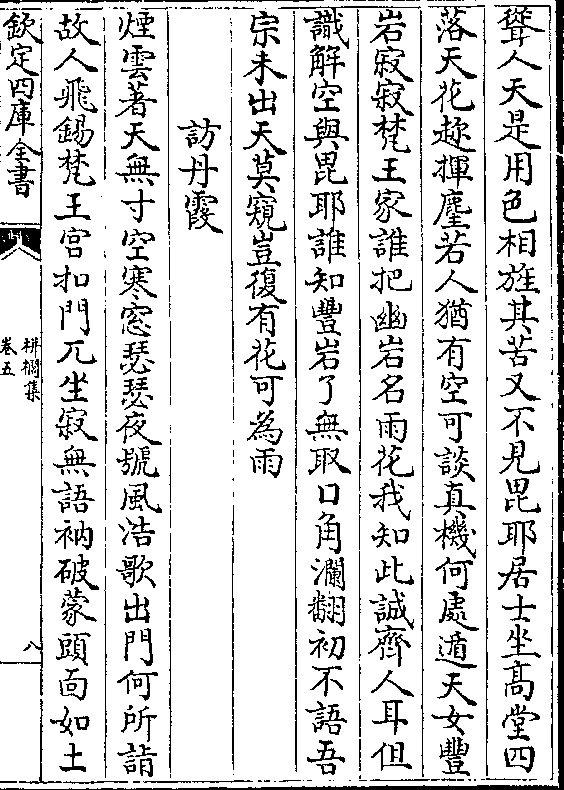 聳人天是用色相旌其苦又不見毘耶居士坐髙堂四
落天花趂揮麈若人猶有空可談真機何處遁天女豐
岩寂寂梵王家誰把幽岩名雨花我知此誠齊人耳但
識解空與毘耶誰知豐岩了無取口角瀾翻初不語吾
宗未出天莫窺豈復有花可為雨
訪丹霞
煙雲著天無寸空寒窓瑟瑟夜號風浩歌出門何所詣
故人飛錫梵王宫扣門兀坐寂無語衲破蒙頭面如土
欽定四庫全書
栟櫚集
卷五
八